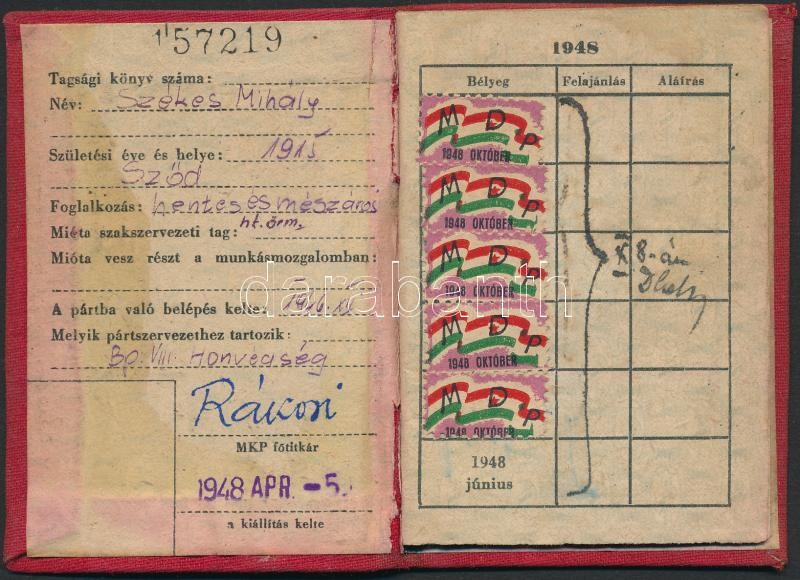 157219
Tagsági könyv száma:
Név: Székes Mihály
Születési éve és helye: 1915
Sződ
Foglalkozás: hentes és mészáros
Mióta szakszervezeti tag: ht. őrm.
Mióta vesz részt a munkásmozgalomban:
A pártba való belépés kelte:
Melyik pártszervezethez tartozik:
Bp. VIII. Honvédség
Rákosi
MKP főtitkár
1948 APR. -5.
a kiállítás kelte
1948
Bélyeg Felajánlás Aláírás
M D P
1948 OKTÓBER
M D P
1948 OKTÓBER
M D P
1948 OKTÓBER
M D P
1948 OKTÓBER
M D P
1948 OKTÓBER
K 8-án
1948
június
darabanth